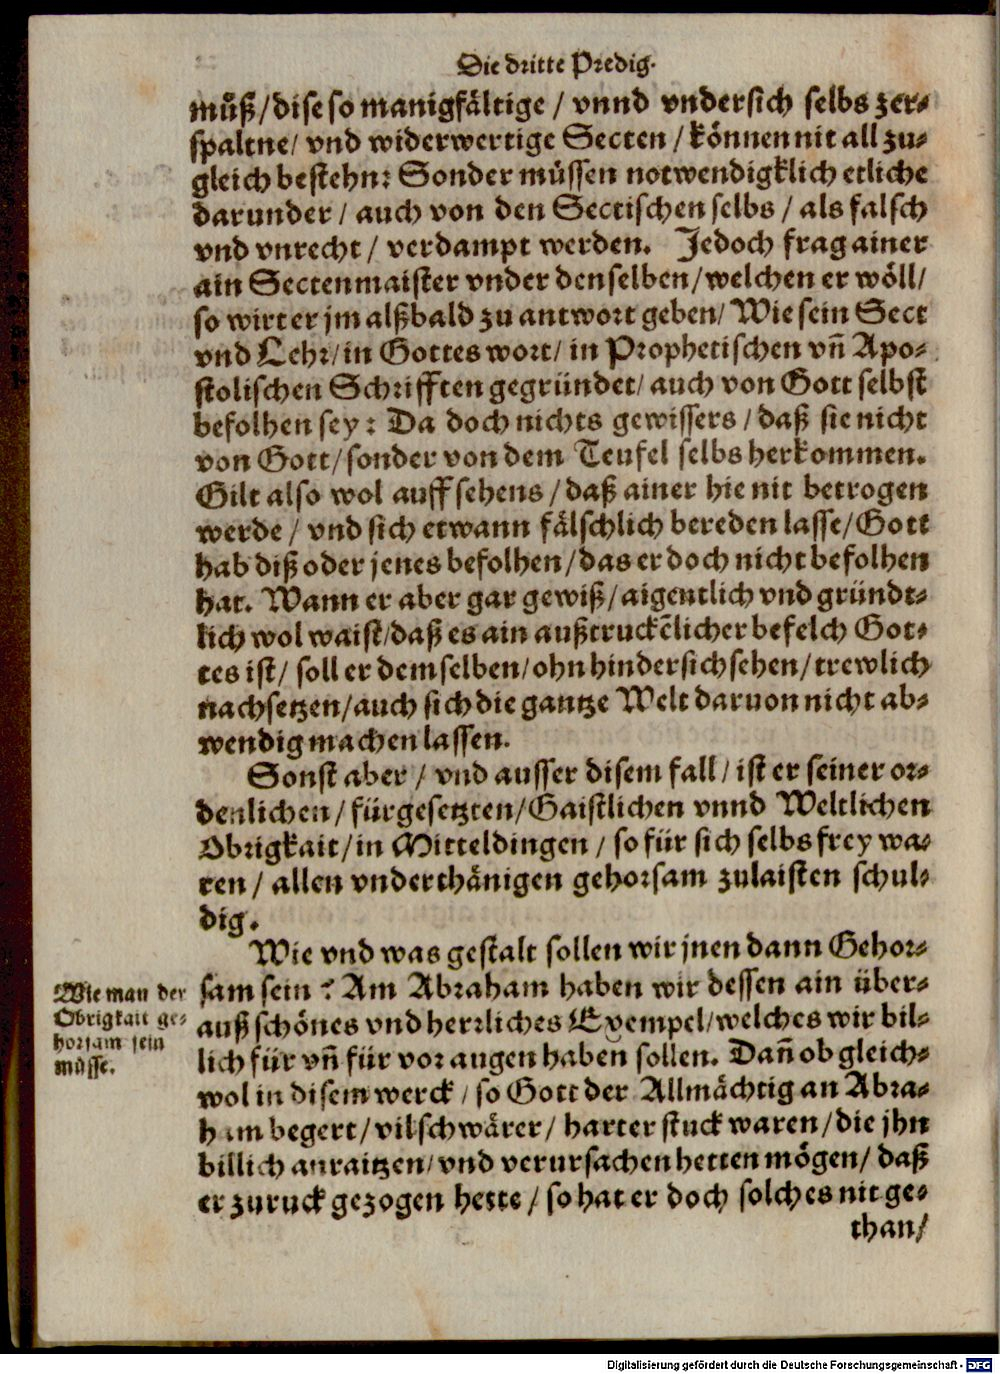 Die dritte Predig.
muͦß/dise so manigfältige / vnnd vndersich selbs zer⸗
spaltne/ vnd widerwertige Secten / können nit all zu⸗
gleich bestehn: Sonder müssen notwendigklich etliche
darunder / auch von den Sectischen selbs / als falsch
vnd vnrecht / verdampt werden. Jedoch frag ainer
ain Sectenmaister vnder denselben/welchen er wöll/
so wirt er jm alßbald zu antwort geben/ Wie sein Sect
vnd Lehr/in Gottes wort/ in Prophetischen vñ Apo⸗
stolischen Schrifften gegründet/ auch von Gott selbst
befolhen sey: Da doch nichts gewissers / daß sie nicht
von Gott/sonder von dem Teufel selbs herkommen.
Gilt also wol auff sehens / daß ainer hie nit betrogen
werde / vnd sich etwann fälschlich bereden lasse/Gott
hab diß oder jenes befolhen/das er doch nicht befolhen
hat. Wann er aber gar gewiß/aigentlich vnd gründt⸗
lich wol waist/daß es ain außtruckẽlicher befelch Got⸗
tes ist/ soll er demselben/ohn hindersichsehen/trewlich
nachsetzen/auch sich die gantze Welt daruon nicht ab⸗
wendig machen lassen.
Sonst aber / vnd ausser disem fall / ist er seiner or⸗
denlichen / fürgesetzten/Gaistlichen vnnd Weltlichen
Obrigkait/in Mitteldingen / so für sich selbs frey wa⸗
ren / allen vnderthänigen gehorsam zulaisten schul⸗
dig.
Wie vnd was gestalt sollen wir jnen dann Gehor⸗
sam sein ? Am Abraham haben wir dessen ain über⸗
auß schönes vnd herrliches Exempel/welches wir bil⸗
lich für vñ für vor augen haben sollen. Dañ ob gleich⸗
wol in disem werck / so Gott der Allmächtig an Abra⸗
ham begert/vil schwärer/ harter stuck waren/die jhn
billich anraitzen/vnd verursachen hetten mögen/ daß
er zuruck gezogen hette / so hat er doch solches nit ge⸗
than/
Wie man der
Obrigkait ge⸗
horsam sein
müsse.
Digitalisierung gefördert durch die Deutsche Forschungsgemeinschaft - DFG